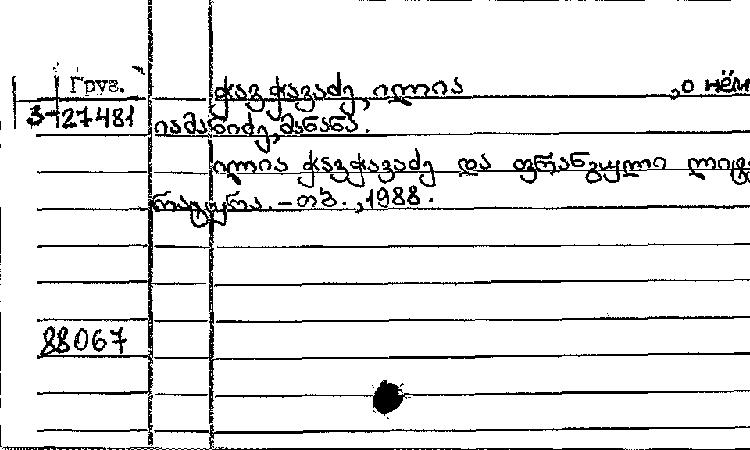 Груз. ჭავჭავაძე, ილია , о нём
3-27481 იამანიძე, მანანა.
ილია ჭავჭავაძე და ფრანგული ლიტე
რატურა. – თბ., 1988.
88067